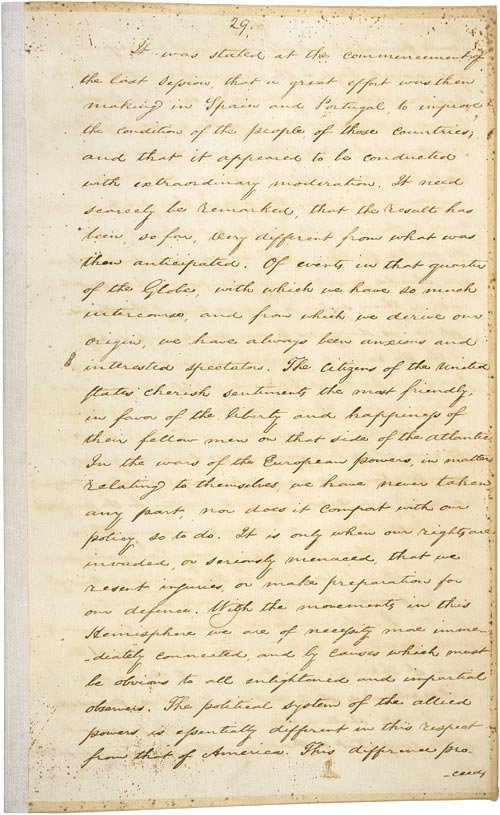 29.
It was stated at the commencement of
the last session, that a great effort was then
making in Spain and Portugal, to improve
the condition of the people, of those countries,
and that it appeared to be conducted
with extraordinary moderation. It need
scarcely be remarked, that the result has
been, so far, very different from what was
then anticipated. Of events in that quarter
of the Globe, with which we have so much
intercourse, and from which we derive our
origin, we have always been anxious and
interested spectators. The Citizens of the United
States cherish sentiments the most friendly,
in favor of the liberty and happiness of
their fellow men on that side of the Atlantic.
In the wars of the European powers, in matters
relating to themselves, we have never taken
any part, nor does it comport with our
policy, so to do. It is only when our rights are
invaded, or seriously menaced, that we
resent injuries, or make preparation for
our defence. With the movements in this
Hemisphere we are of necessity more imme-
-diately connected, and by causes which must
be obvious to all enlightened and impartial
observers. The political system of the allied
powers, is essentially different in this respect
from that of America. This difference pro-
-ceeds